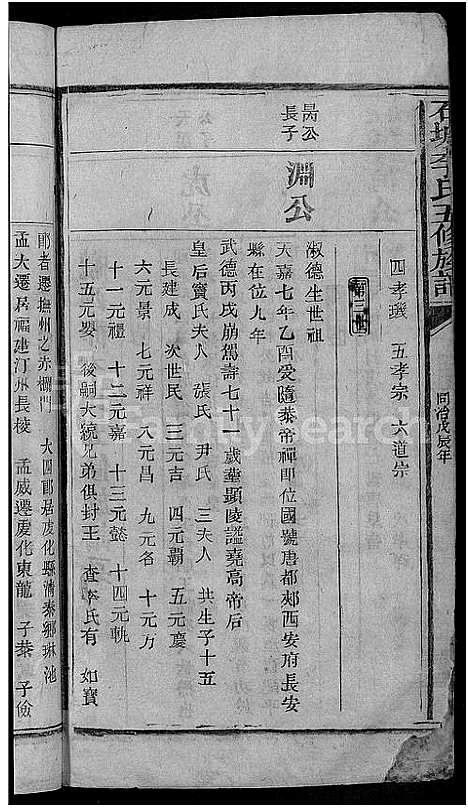 石城李氏五修族譜
同治戊辰年
四孝璵 五孝宗 六道宗
第二世
昺公
長子
淵公
淑德生世祖
大嘉七年乙酉受隨恭帝禪即位國號唐都郟西安府長安
縣在位九年
武德丙戌崩駕壽七十一歲塟顯陵謚堯高帝后
皇后竇氏夫人 張氏 尹氏 三夫人 共生子十五
長建成 次世民 三元吉 四元霸 五元慶
六元景 七元祥 八元昌 九元名 十元方
十一元禮 十二元嘉 十三元懿 十四元軌
十五元嬰 後嗣大統兄弟俱封王 查李氏有 如寶
郎者遷撫州之赤欄門 大四郎居虔化縣清泰鄉琳池
孟大遷居福建汀州長棱 孟威遷虔化東龍 子恭 子儉
FamilySearch